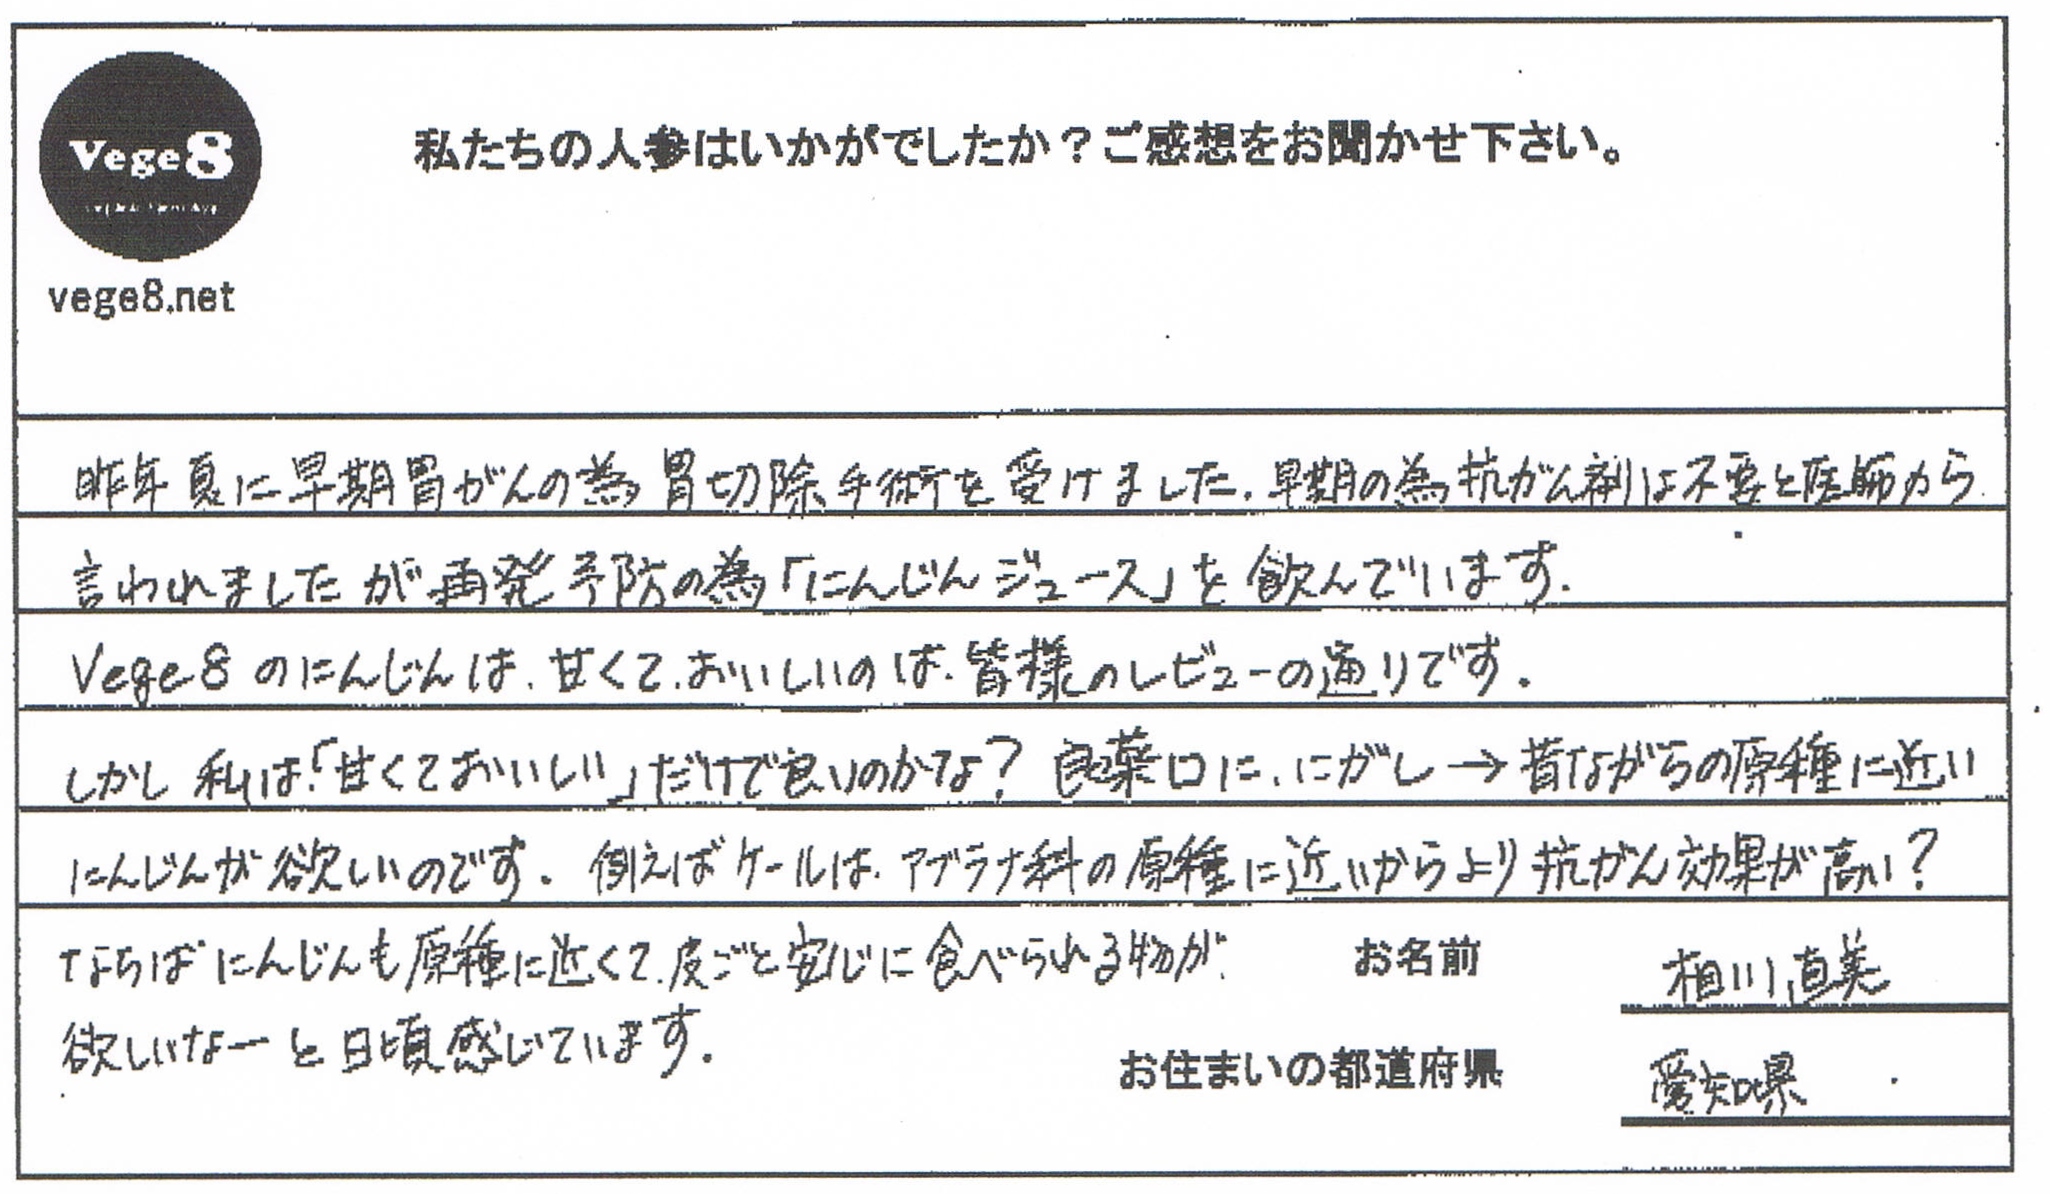 Vege8
私たちの人参はいかがでしたか？ご感想をお聞かせ下さい。
vege8.net
昨年夏に早期胃がんの為胃切除手術を受けました。早期の為抗がん剤は不要と医師から
言われましたが再発予防の為「にんじんジュース」を飲んでいます。
Vege8のにんじんは、甘くて、おいしいのは、皆様のレビューの通りです。
しかし私は「甘くておいしい」だけで良いのかな？良薬口に、にがし→昔ながらの原種に近い
にんじんが欲しいのです。例えばケールは、アブラナ科の原種に近いからより抗がん効果が高い？
ならばにんじんも原種に近くて、皮ごと安心に食べられる物が、
欲しいなーと日頃感じています。
お名前 相川直美
お住まいの都道府県 愛知県